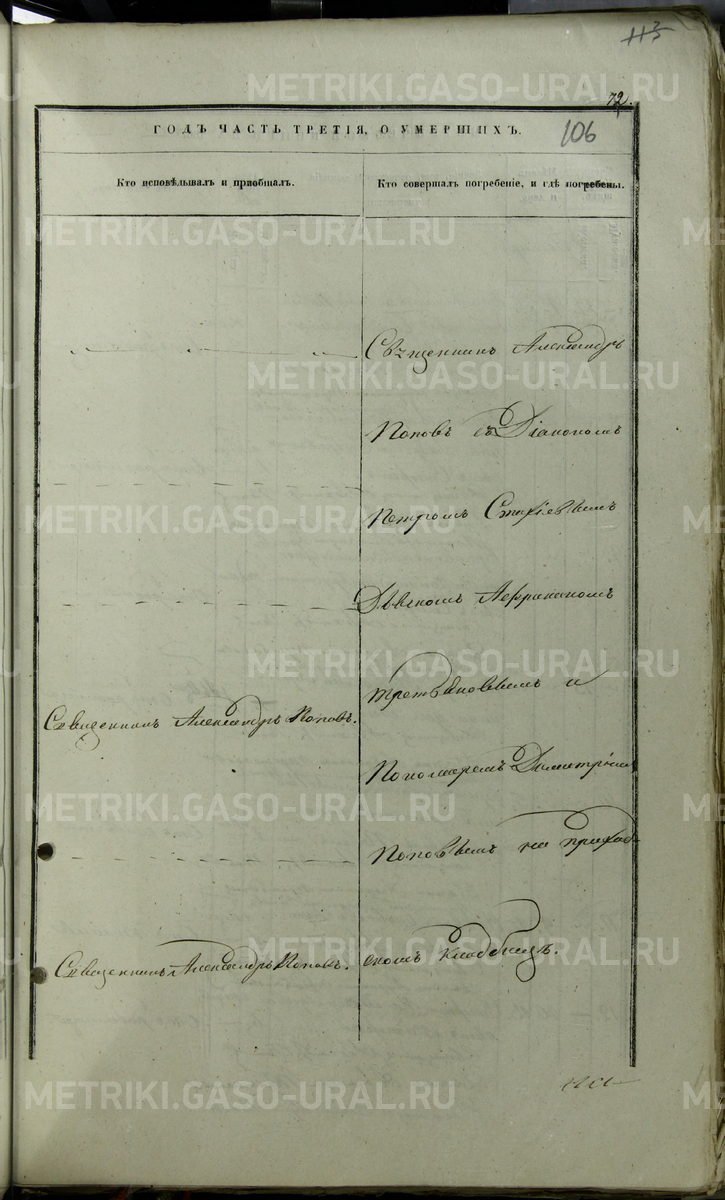 113
72.
106
ГОДЪ ЧАСТЬ ТРЕТІЯ, О УМЕРШИХЪ.
Кто исповѣдывалъ и пріобщалъ.
Кто совершалъ погребеніе, и гдѣ погребены.
Священникъ Александръ
Поповъ съ Діакономъ
Петромъ
Дьячкомъ Африканомъ
Третьяковымъ и
Священникъ Александръ Поповъ.
Пономаремъ Димитріемъ
Поповымъ на приход-
скомъ кладбищѣ.
Священникъ Александръ Поповъ.
METRIKI.GASO-URAL.RU
METRIKI.GASO-URAL.RU
METRIKI.GASO-URAL.RU
METRIKI.GASO-URAL.RU
METRIKI.GASO-URAL.RU
METRIKI.GASO-URAL.RU
METRIKI.GASO-URAL.RU
METRIKI.GASO-URAL.RU